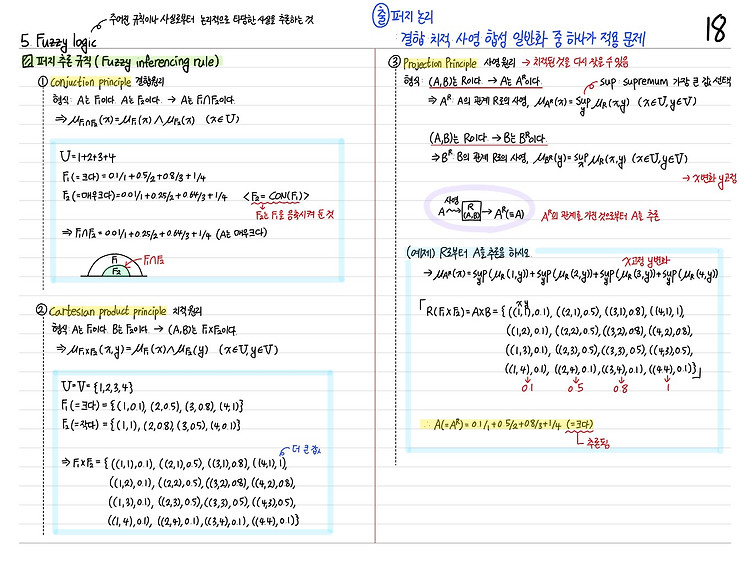 주어진 규칙이나 사실로부터 논리적으로 타당한 사실을 추론하는 것
5. Fuzzy logic
퍼지 추론 규칙 (Fuzzy inferencing rule)
① Conjuction principle 결합원리
형식: A는 F₁이다. A는 F₂이다. → A는 F₁∩F₂이다.
⇒ μF₁∩F₂(x) = μF₁(x) ∧ μF₂(x) (x∈U)
U = 1+2+3+4
F₁(=크다) = 0.1/1 + 0.5/2 + 0.8/3 + 1/4
F₂(=매우크다) = 0.01/1 + 0.25/2 + 0.64/3 + 1/4 <F₂ = CON(F₁)>
F₂는 F₁을 응축시켜 둔 것
⇒ F₁∩F₂ = 0.01/1 + 0.25/2 + 0.64/3 + 1/4 (A는 매우크다)
F₁ F₁∩F₂
F₂
② Cartesian product principle 치적원리
형식: A는 F₁이다. B는 F₂이다. → (A,B)는 F₁×F₂이다.
⇒ μF₁×F₂(x,y) = μF₁(x) ∧ μF₂(y) (x∈U, y∈V)
U = V = {1,2,3,4}
F₁(=크다) = {(1,0.1), (2,0.5), (3,0.8), (4,1)}
F₂(=작다) = {(1,1), (2,0.8) (3,0.5), (4,0.1)}
더 큰 값
⇒ F₁×F₂ = {((1,1),0.1), ((2,1),0.5), ((3,1),0.8), ((4,1),1),
((1,2),0.1), ((2,2),0.5), ((3,2),0.8), ((4,2),0.8),
((1,3),0.1), ((2,3),0.5), ((3,3),0.5), ((4,3),0.5),
((1,4),0.1), ((2,4),0.1), ((3,4),0.1), ((4,4),0.1)}
출 퍼지 논리
: 결합 치적 사영 합성 일반화 중 하나가 적용 문제
18
③ Projection Principle 사영원리 → 치적된것을 다시 찾을 수 있음
형식: (A,B)는 R이다. → A는 Aᴿ이다. sup: supremum 가장 큰 값 선택
⇒ Aᴿ: A의 관계 R로의 사영, μAᴿ(x) = sup y μR(x,y) (x∈U, y∈V)
(A,B)는 R이다 → B는 Bᴿ이다.
⇒ Bᴿ: B의 관계 R로의 사영, μBᴿ(y) = sup x μR(x,y) (x∈U, y∈V)
→ x변화 y고정
사영
A → R (A,B) → Aᴿ(=A) Aᴿ의 관계를 가진 것으로부터 A는 추론
(예제) R로부터 A를 추론을 하시오
x고정 y변화
→ μAᴿ(x) = sup y(μR(1,y)) + sup y(μR(2,y)) + sup y(μR(3,y)) + sup y(μR(4,y))
x y
「R(F₁×F₂) = A×B = {((1,1),0.1), ((2,1),0.5), ((3,1),0.8), ((4,1),1),
((1,2),0.1), ((2,2),0.5), ((3,2),0.8), ((4,2),0.8),
((1,3),0.1), ((2,3),0.5), ((3,3),0.5), ((4,3),0.5),
((1,4),0.1), ((2,4),0.1), ((3,4),0.1), ((4,4),0.1)}」
0.1 0.5 0.8 1
∴ A(=Aᴿ) = 0.1/1 + 0.5/2 + 0.8/3 + 1/4 (=크다)
추론됨